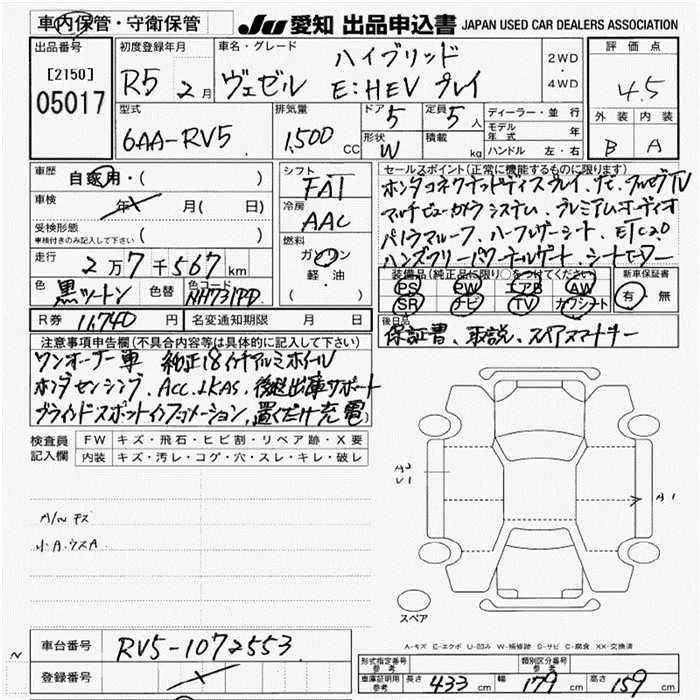 車内保管・守衛保管
JU 愛知 出品申込書 JAPAN USED CAR DEALERS ASSOCIATION
出品番号
[2150]
05017
初度登録年月
R5 2月
車名・グレード
ハイブリッド
ヴェゼル E:HEV プレイ
2WD
・
4WD
評価点
4.5
外装 内装
B A
型式
6AA-RV5
排気量
1,500 CC
ドア 5
定員 5 人
形状 W
積載 kg
ディーラー・並行
モデル年式 年
ハンドル 左・右
車歴
自家用・( )
車検
年 月( 日)
受検形態
車検付きのみ記入して下さい ( )
走行
2万7千567km
色 黒ツートン 色替 色コード NH731PD
シフト
FAT
冷房
AAC
燃料
ガソリン
軽・油
( )
セールスポイント(正常に機能するものに限ります)
ホンダコネクテッドディスプレイ、ナビ、フルセグTV
マルチビューカメラシステム、プレミアムオーディオ
パノラマルーフ、ハーフレザーシート、ETC2.0
ハンズフリーパワーテールゲート、シートヒーター
装備品(純正品に限り○をつけてください) 新車保証書
PS PW エアB AW
SR ナビ TV カワシート
有・無
R券 11,740円 名変通知期限 月 日
後日品
保証書、取説、スペアスマートキー
注意事項申告欄(不具合内容等は具体的に記入して下さい)
ワンオーナー車 純正18インチアルミホイール
ホンダセンシング、ACC、LKAS、後退出庫サポート
ブラインドスポットインフォメーション、置くだけ充電
検査員記入欄
FW キズ・飛石・ヒビ割・リペア跡・X要
内装 キズ・汚レ・コゲ・穴・スレ・キレ・破レ
A/W キズ
小A.ウスA
A2
U1
A1
スペア
A-キズ E-エクボ U-凹み W-補修跡 S-サビ C-腐食 XX-交換済
N
車台番号 RV5-1072553
登録番号
型式指定番号 参考
類別区分番号 参考
車庫証明用 参考 長さ 433cm 幅 179cm 高さ 159cm